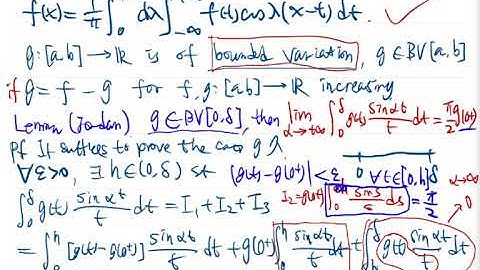 f(x) = 1/π ∫_0 dλ ∫_{-∞} f(t) cos λ(x-t) dt. ✓
g: [a,b] → ℝ is of bounded variation, g ∈ BV[a,b]
if g = f - g for f, g: [a,b] → ℝ increasing
Lemma (Jordan) g ∈ BV[0,δ], then lim_{α→+∞} ∫_0^δ g(t) sin αt / t dt = π/2 g(0⁺)
Pf It suffices to prove the case g ↗.
∀ε>0, ∃ h ∈ (0,δ) st |g(t) - g(0⁺)| < ε, ∀t ∈ (0,h] 0 δ
I_2 = g(0⁺) ∫_0^{αh} sin s / s ds = π/2 α→∞
∫_0^δ g(t) sin αt / t dt = I_1 + I_2 + I_3 0
= ∫_0^h [g(t) - g(0⁺)] sin αt / t dt + g(0⁺) ∫_0^h sin αt / t dt + ∫_h^δ g(t) sin αt / t dt